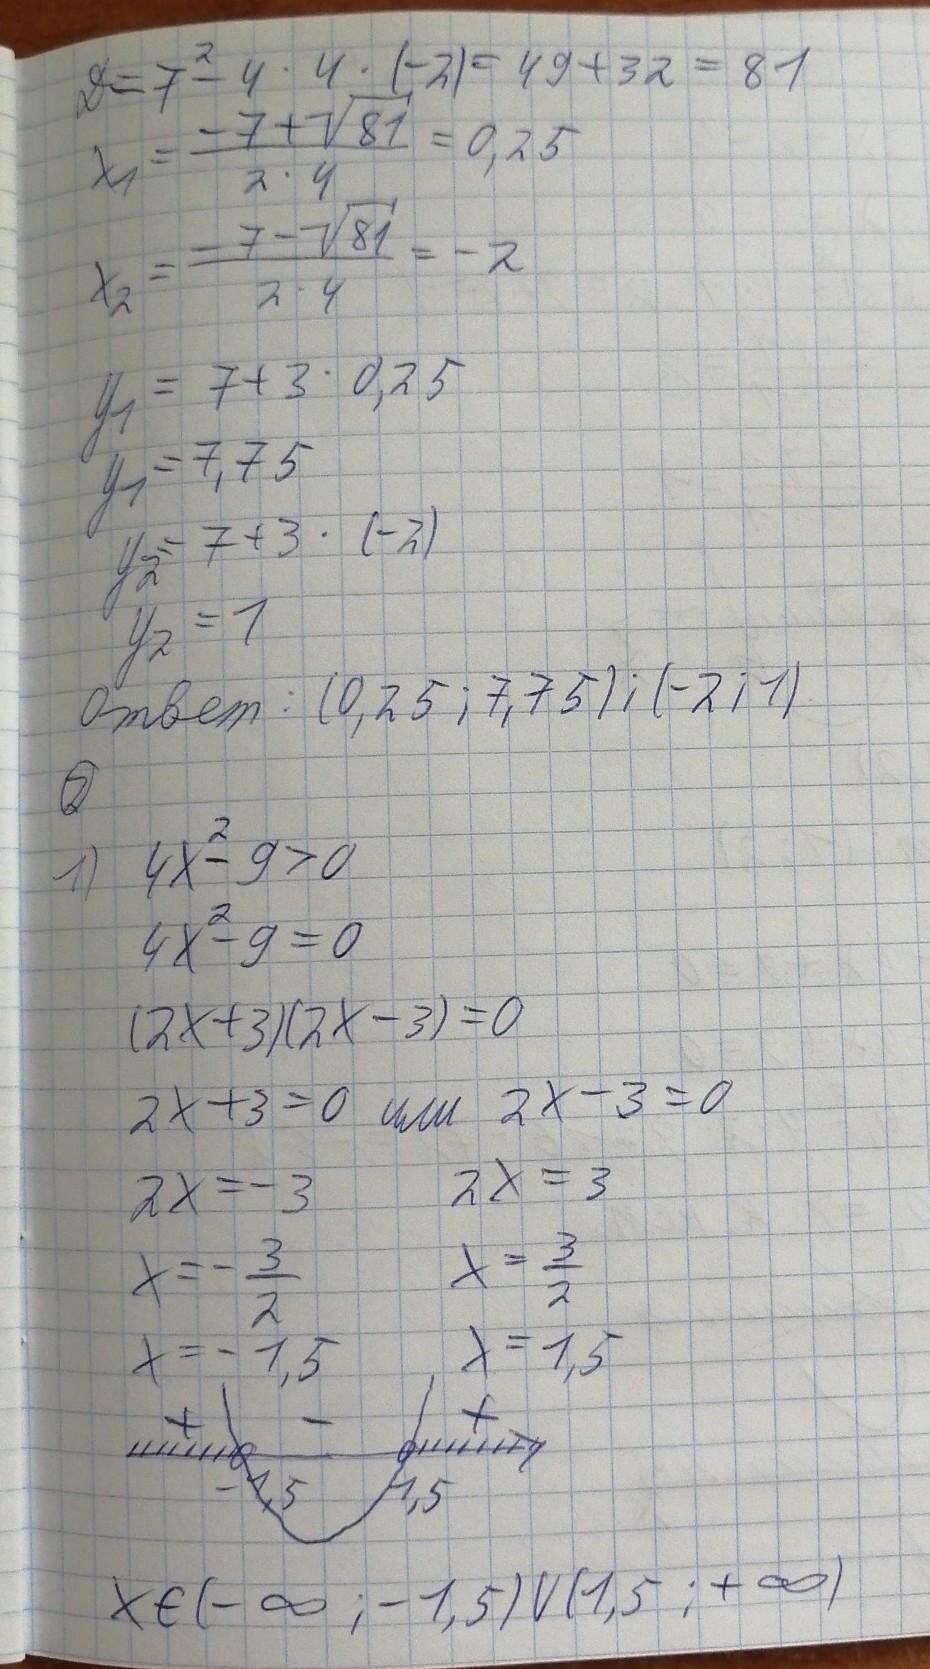 D = 7² - 4 · 4 · (-2) = 49 + 32 = 81
x₁ = (-7 + √81)/(2 · 4) = 0,25
x₂ = (-7 - √81)/(2 · 4) = -2
y₁ = 7 + 3 · 0,25
y₁ = 7,75
y₂ = 7 + 3 · (-2)
y₂ = 1
Ответ: (0,25 ; 7,75) ; (-2 ; 1)
②
1) 4x² - 9 > 0
4x² - 9 = 0
(2x + 3)(2x - 3) = 0
2x + 3 = 0 или 2x - 3 = 0
2x = -3 2x = 3
x = -3/2 x = 3/2
x = -1,5 x = 1,5
+ - +
-1,5 1,5
x ∈ (-∞ ; -1,5) ∪ (1,5 ; +∞)